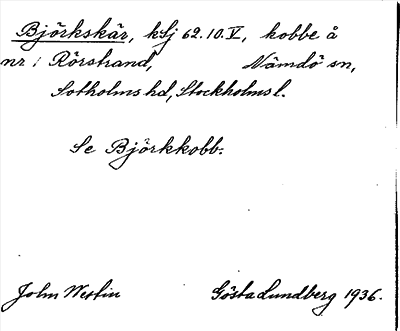 Björkskär, kSj 62.10.V, kobbe å
nr 1 Rörstrand, Nämdö sn,
Sotholms hd, Stockholms l.
Se Björkkobb.
John Westin Gösta Lundberg 1936.